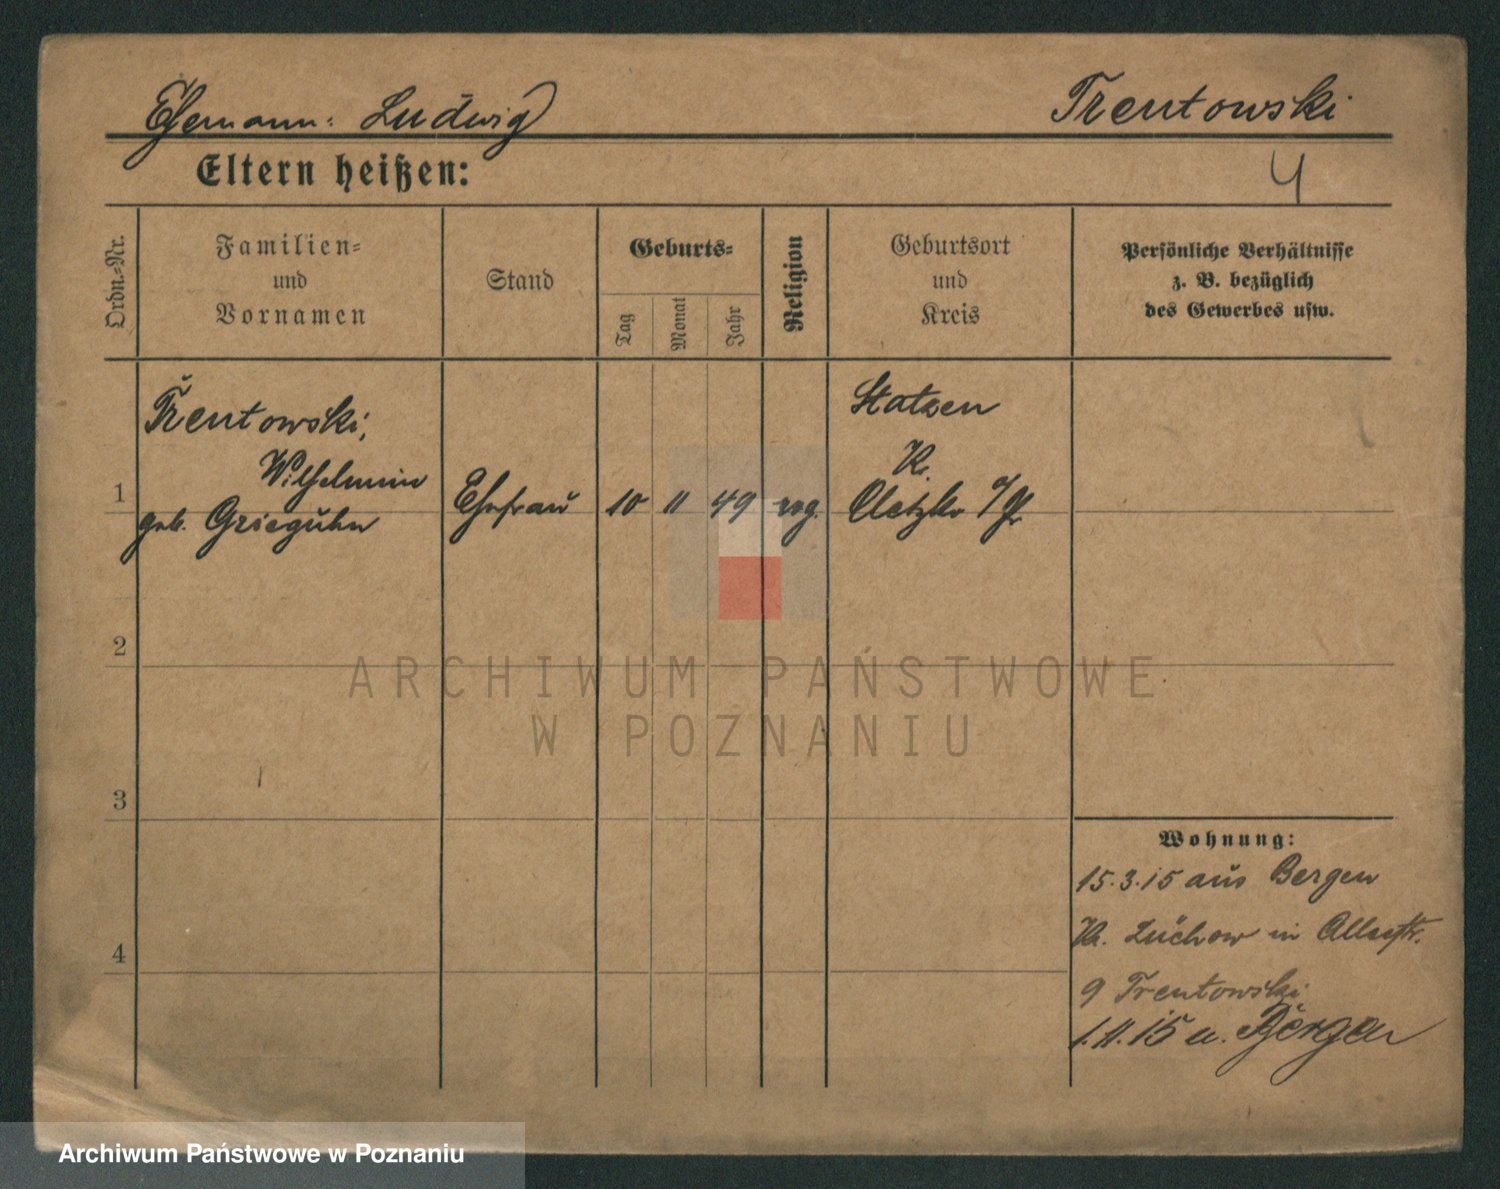 Ehemann: Ludwig Trentowski
Eltern heißen: 4
Ordn.=Nr.
Familien=
und
Vornamen
Stand
Geburts=
Tag
Monat
Jahr
Religion
Geburtsort
und
Kreis
Persönliche Verhältnisse
z. B. bezüglich
des Gewerbes usw.
1
Trentowski,
Wilhelmin
geb. Grieguhn
Ehefrau
10
11
49
evg.
Statzen
Kr.
Oletzko O/Pr
2
3
4
Wohnung:
15.3.15 aus Bergen
Kr. Lüchow in
9 Trentowski
1.11.15 n. Bergen
ARCHIWUM PAŃSTWOWE
W POZNANIU
Archiwum Państwowe w Poznaniu